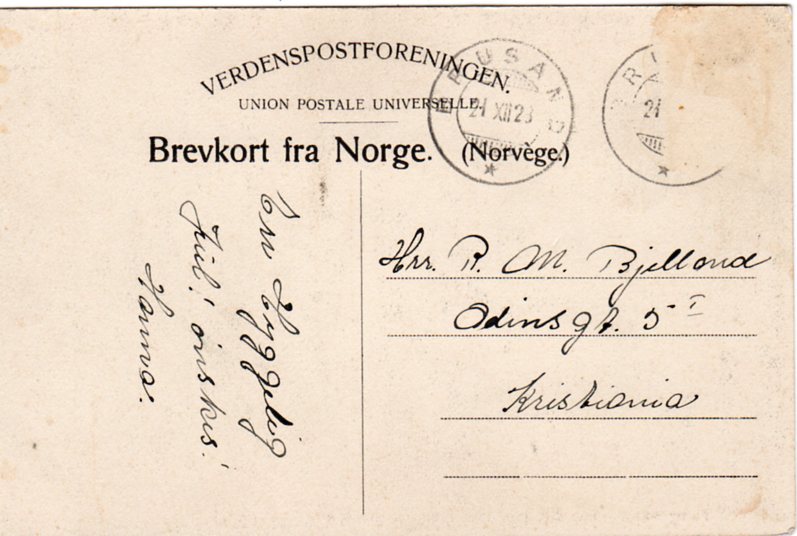 VERDENSPOSTFORENINGEN.
UNION POSTALE UNIVERSELLE.
Brevkort fra Norge. (Norvège.)
BRUSAND
21 XII 23
BRU
21
En Hyggelig
Jul! ønskes!
Hanna.
Hrr. R. M. Bjelland
Odinsgt. 5 I
Kristiania